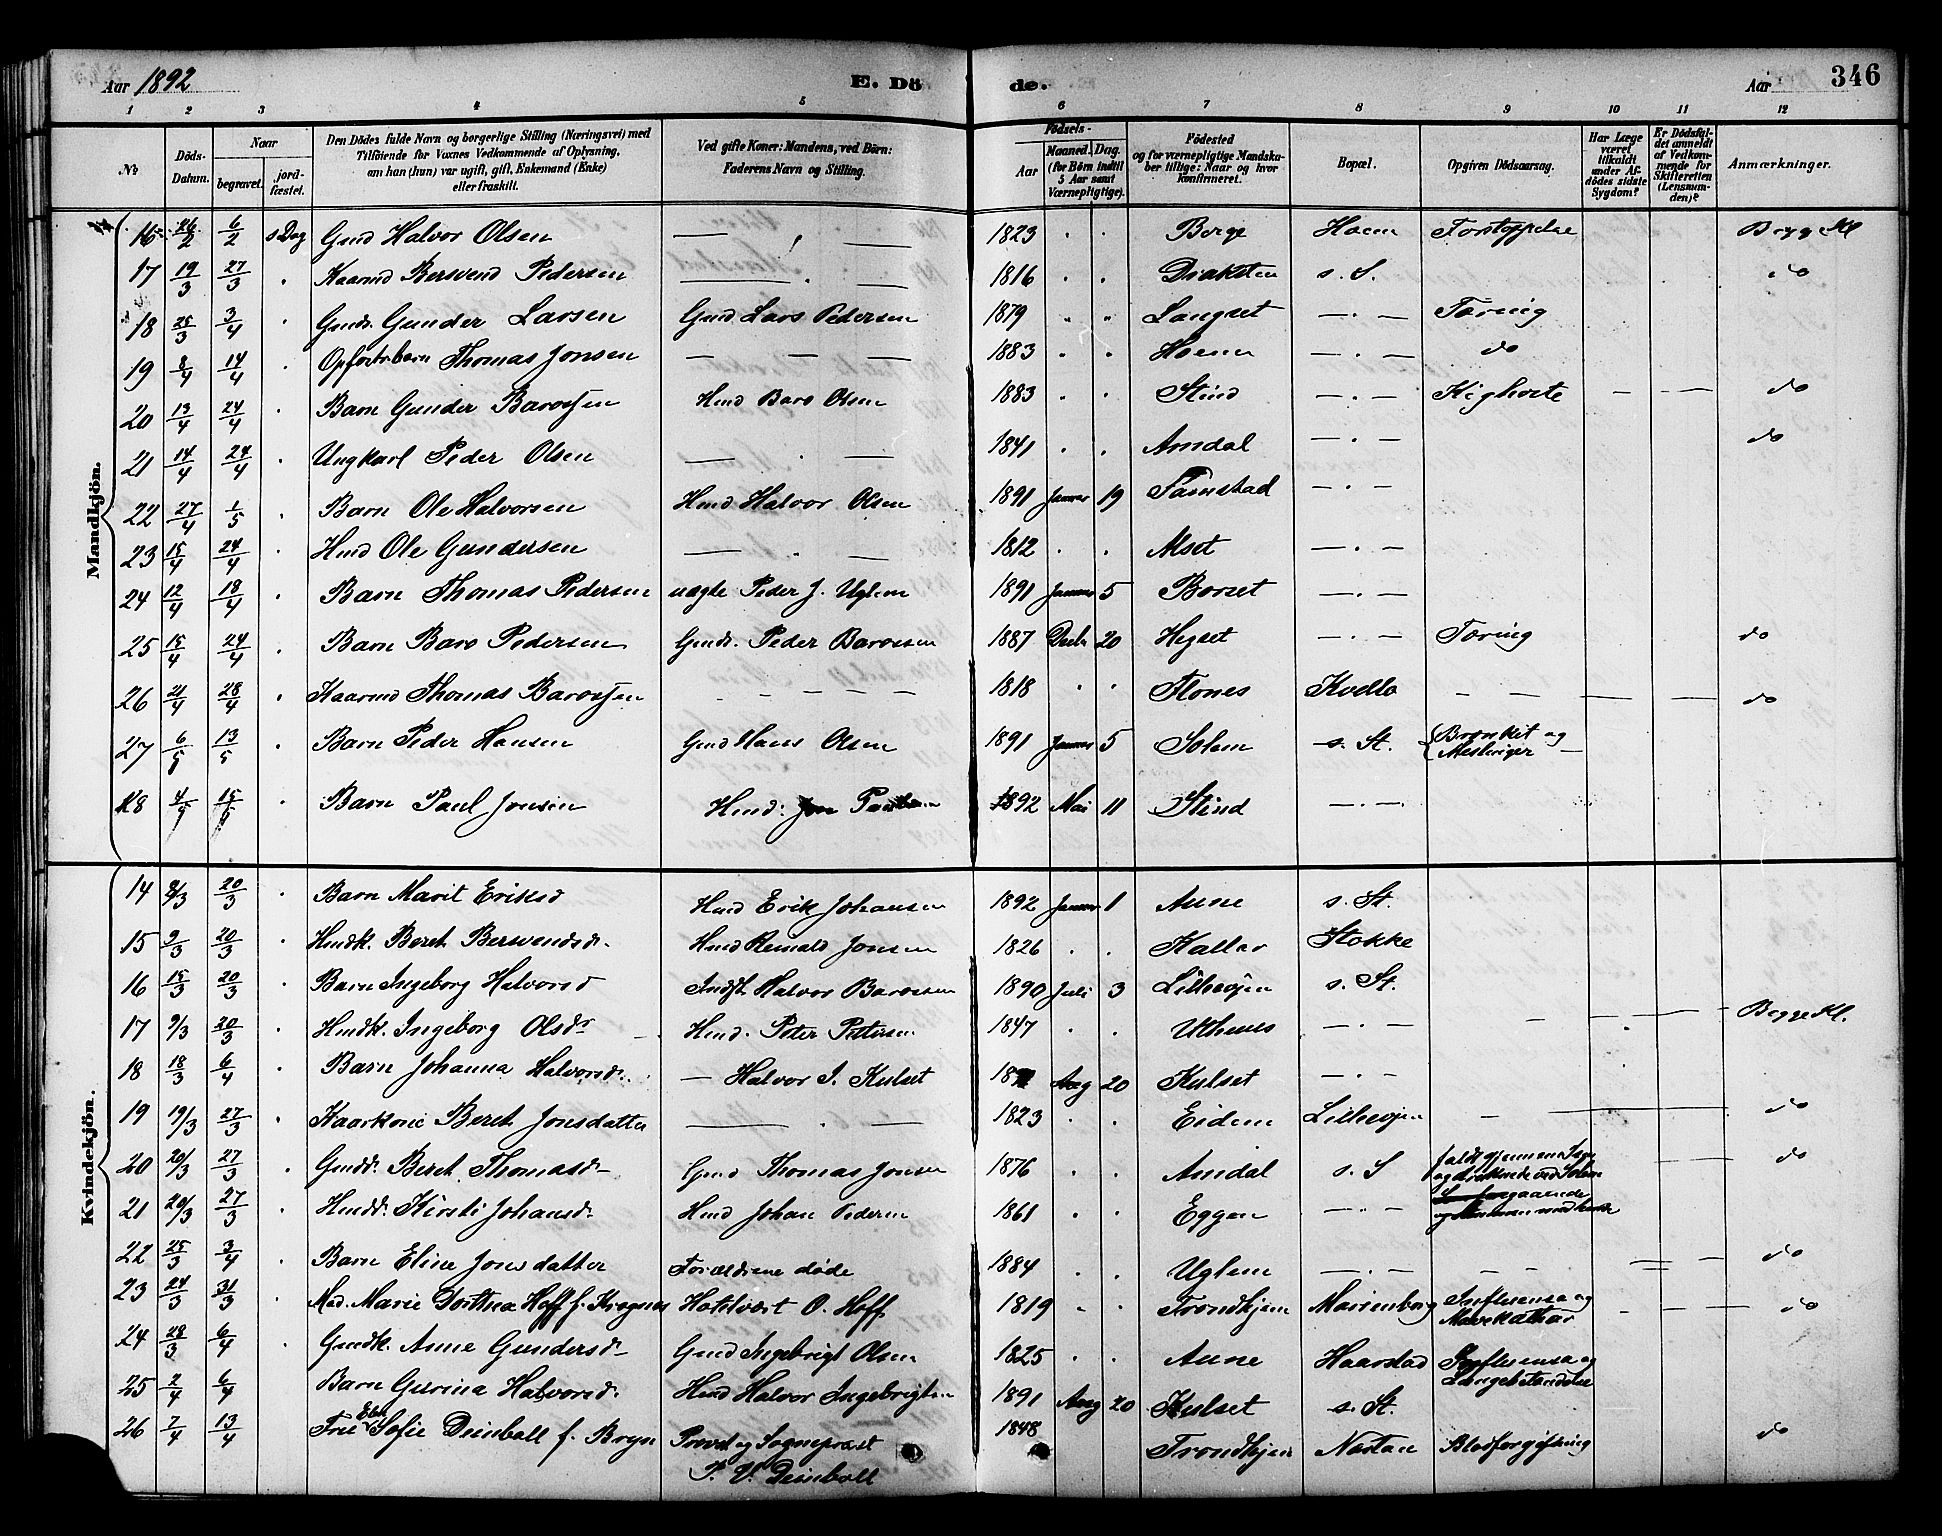 Aar 1892
E. Dö
de.
Aar
346
1 2 3 4 5 6 7 8 9 10 11 12
№
Döds-Datum.
Naar
begravet.
jord-fæstet.
Den Dödes fulde Navn og borgerlige Stilling (Næringsvei) med
Tilföiende for Voxnes Vedkommende af Oplysning,
om han (hun) var ugift, gift, Enkemand (Enke)
eller fraskilt.
Ved gifte Koner: Mandens, ved Börn:
Faderens Navn og Stilling.
Födsels-
Aar
Maaned. Dag.
(for Börn indtil
5 Aar samt
Værnepligtige).
Födested
og for værnepligtige Mandska-
ber tillige: Naar og hvor
konfirmeret.
Bopæl.
Opgiven Dödsaarsag.
Har Læge
været
tilkaldt
under Af-
dödes sidste
Sygdom?
Er Dödsfal-
det anmeldt
af Vedkom-
mende for
Skifteretten
(Lensman-
den)?
Anmærkninger.
Mandkjön.
16 26/2 6/2 s. Dag Gmd Halvor Olsen — 1823 Berge Hoem Forstoppelse Begge Kl
17 19/3 27/3 Kaarmd Bersvend Pedersen — 1816 Draksten s. S. do
18 25/3 3/4 Gmds. Gunder Larsen Gmd. Lars Pedersen 1879 Langset — . — Tæring
19 8/4 14/4 Opfostrbarn Thomas Jonsen — 1883 Hoem — . — do
20 13/4 24/4 Barn Gunder Baroesen Hmd Baro Olsen 1883 Stind — . — Kighoste — — do
21 14/4 24/4 Ungkarl Peder Olsen — 1841 Amdal — . — do
22 27/4 1/5 Barn Ole Halvorsen Hmd Halvor Olsen 1891 Januar 19 Tømstad — . —
23 15/4 24/4 Hmd Ole Gundersen — 1812 Alset — . —
24 12/4 18/4 Barn Thomas Pedersen uægte Peder J. Uglem 1891 Januar 5 Borset — . —
25 15/4 24/4 Barn Baro Pedersen Gmds. Peder Baroesen 1887 Decb 20 Hegset — . — Tæring do
26 21/4 28/4 Kaarmd Thomas Baroesen — 1818 Flones Kvello — do
27 6/5 13/5 Barn Peder Hansen Gmd Hans Olsen 1891 Januar 5 Solem s. St. Bronkit og Meslinger
28 4/5 15/5 Barn Paul Jonsen Hmd: Jon Paulsen 1892 Mai 11 Stind — . —
Kvindekjön.
14 8/3 20/3 Barn Marit Eriksd Hmd Erik Johansen 1892 Januar 1 Aune s. St.
15 9/3 20/3 Hmdk. Beret Bersvendsd. Hmd Reinald Jonsen 1826 Kallar Stokke
16 15/3 20/3 Barn Ingeborg Halvorsd Indst Halvor Baroesen 1890 Juli 3 Lillevjen s. St.
17 9/3 20/3 Hmdk. Ingeborg Olsdr Hmd. Peter Pettersen 1847 Uthus — . — Begge Kl.
18 18/3 6/4 Barn Johanna Halvorsd. — Halvor I. Kulset Aug 20 Kulset — . —
19 19/3 27/3 Kaarkone Beret Jonsdatter — 1823 Eidem Lillevjen — do
20 20/3 27/3 Gmdd. Beret Thomasd. Gmd Thomas Jonsen 1876 Amdal s. S faldt gjennem Isen og druknede ved Solem do
21 20/3 27/3 Hmdd. Kirsti Johansd. Hmd Johan Pedersen 1861 Eggen — . — foregaaende
22 25/3 3/4 Barn Eline Jonsdatter Forældrene døde 1884 Uglem — . — do
23 24/3 31/3 Mad. Marie Dorthea Hoff f. Krognes Hotelvært O. Hoff 1819 Trondhjem Marienborg Influensa og Mavekathar do
24 28/3 6/4 Gmdk. Anne Gundersd. Gmd Ingebrigt Olsen 1825 Aune Haarstad Influensa og Lungebetændelse
25 2/4 6/4 Barn Gurina Halvorsd. Hmd Halvor Ingebrigtsen 1891 Aug 20 Kulset s. St.
26 7/4 13/4 Frue Elen Sofie Deinboll f. Bryn Provst og Sognepræst 1848 Trondhjem Næstan Blodforgiftning do
P. V. Deinboll